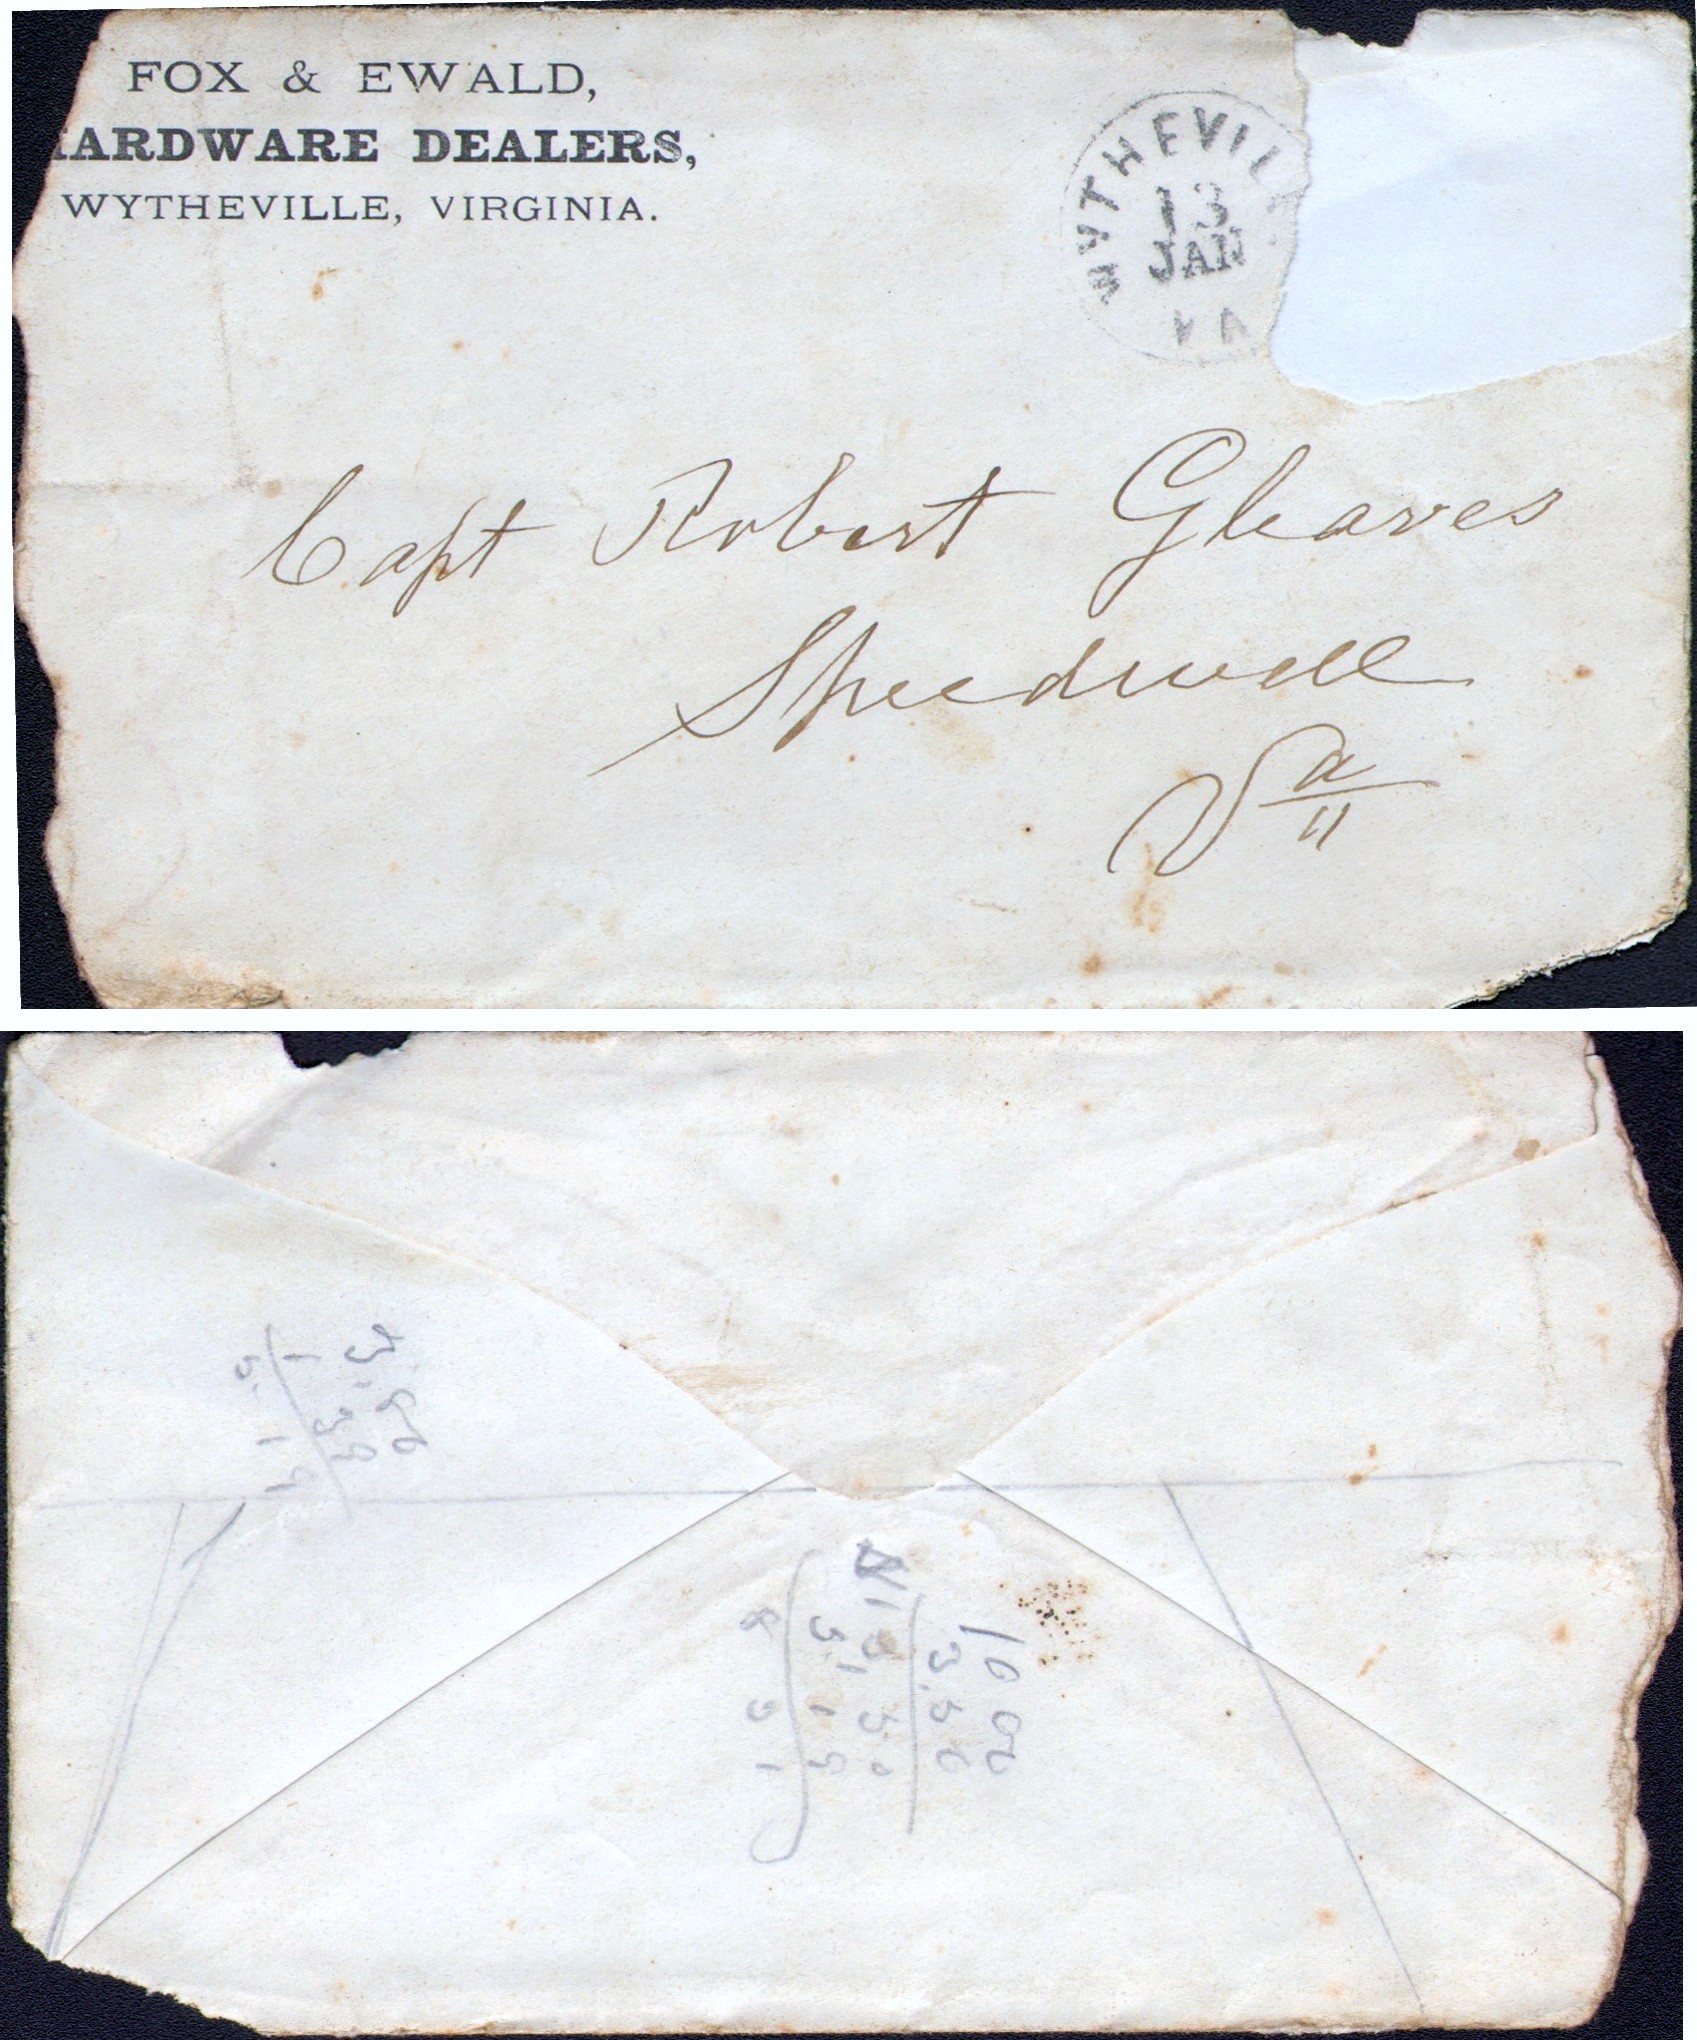 FOX & EWALD,
HARDWARE DEALERS,
WYTHEVILLE, VIRGINIA.
WYTHEVILL
13
JAN
VA
Capt Robert Gleaves
Speedwell
Va
3.56
831